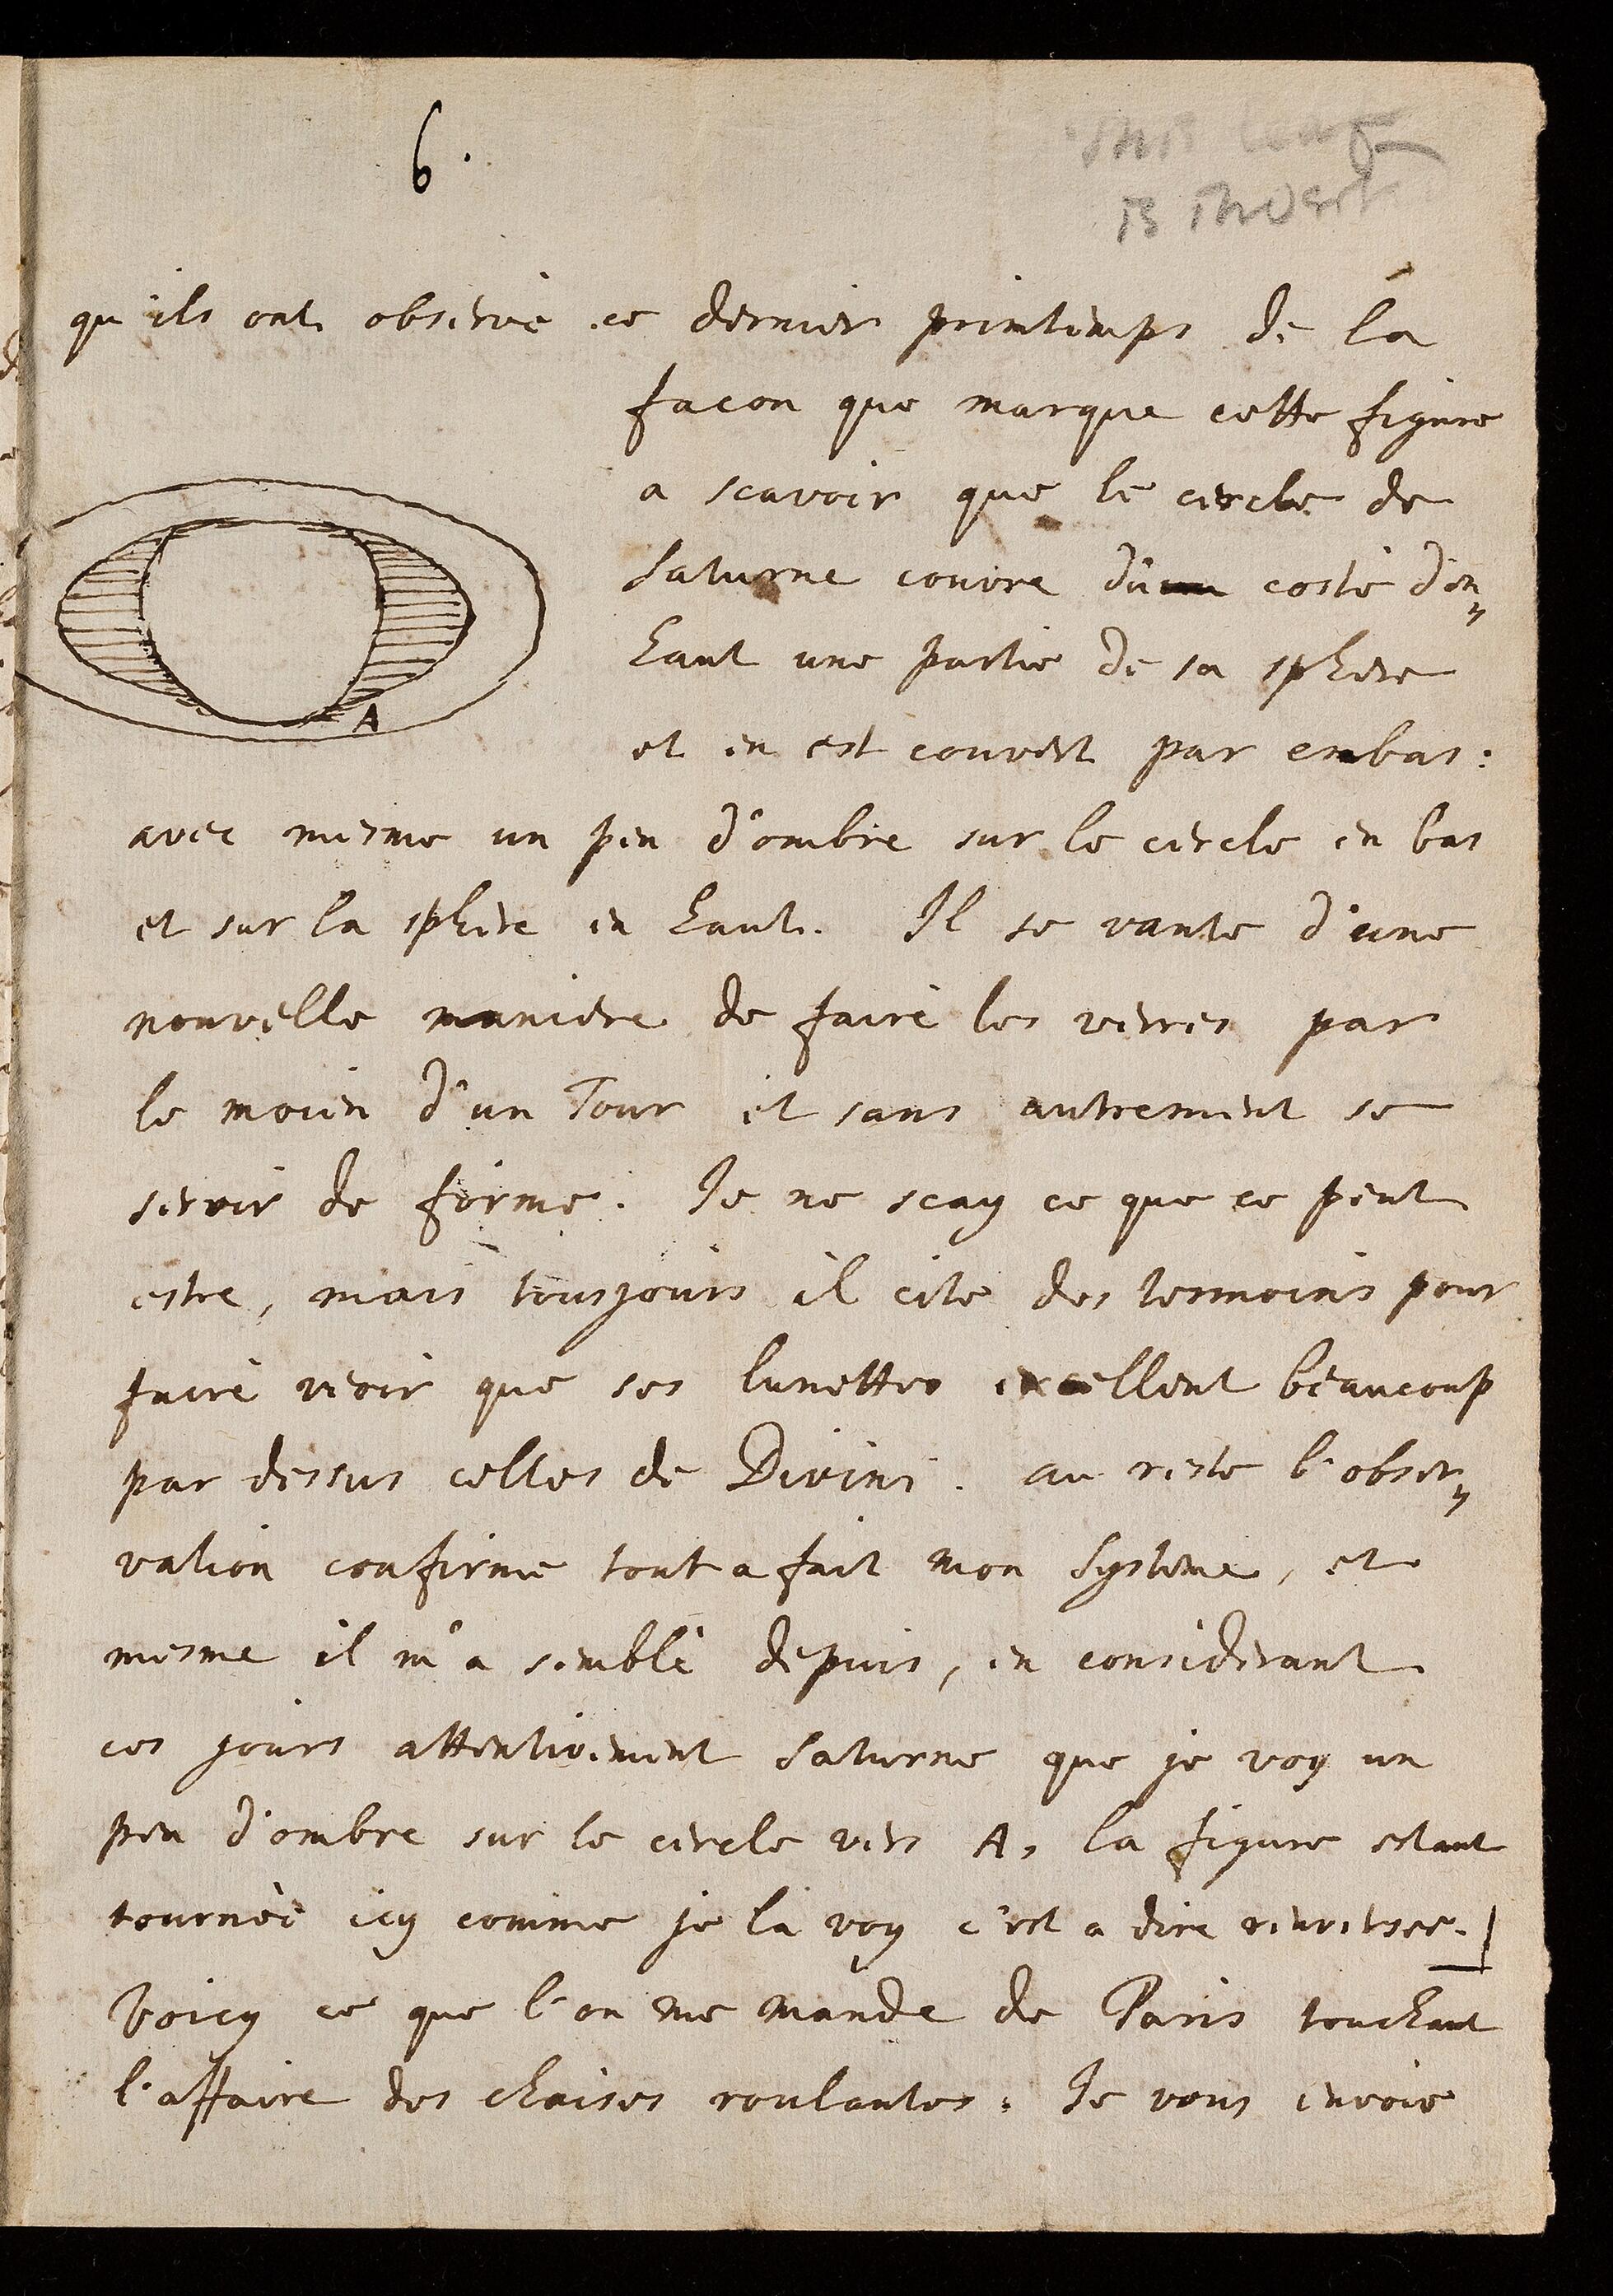 6.
is
qu'ils ont observè ce dernier printemps de la
facon que marque cette figure
a scavoir que le cercle de
Saturne couvre du costè d'en
haut une partie de sa sphere
et en est couvert par embas:
A
avec mesme un peu d'ombre sur le cercle en bas
et sur la sphere en haut. Il se vante d'une
nouvelle maniere de faire les verres par
le moien d'un Tour et sans autrement se
servir de forme. Je ne scay ce que ce peut
estre, mais tousjours il cite des tesmoins pour
faire veoir que ses lunettes excellent beaucoup
par dessus celles de Divini. au reste l'obser„
vation confirme tout a fait mon Systeme, et
mesme il m'a semblè depuis, en considerant
ces jours attentivement Saturne que je voy un
peu d'ombre sur le cercle vers A, la figure estant
tournèe icy comme je la voy c'est a dire renversee.
Voicy ce que l'on me mande de Paris touchant
l'affaire des chaises roulantes: Je vous envoie